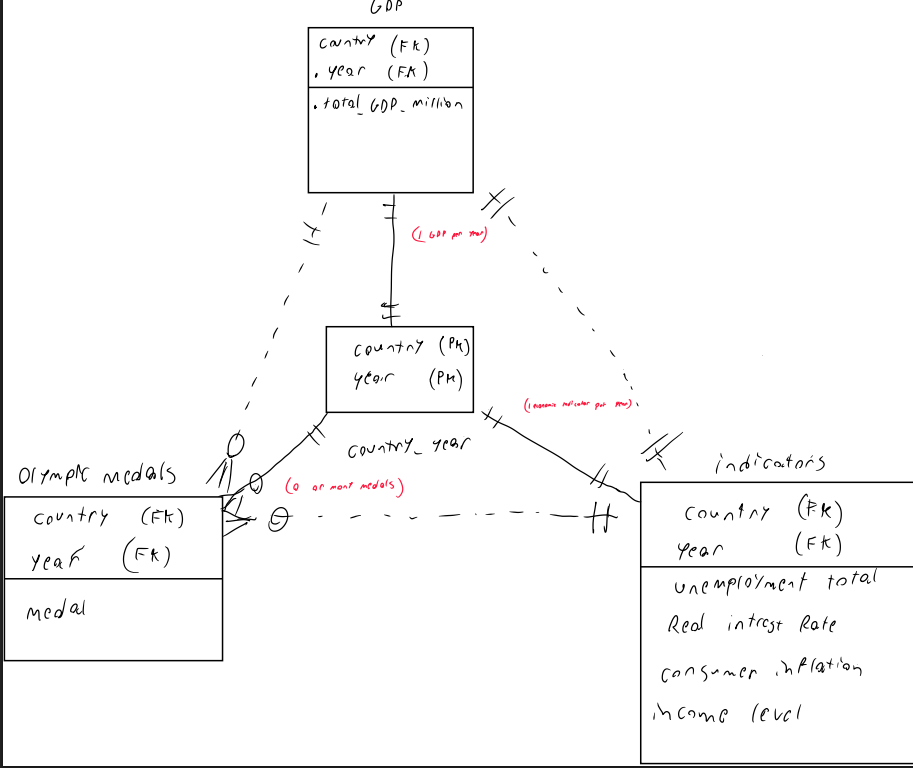 GDP
country (FK)
. year (FK)
. total_GDP_million
(1 GDP per year)
country (PK)
year (PK)
country_year
(1 economic indicator per year)
Olympic medals
country (FK)
year (FK)
medal
(0 or many medals)
indicators
country (FK)
year (FK)
unemployment total
Real intrest Rate
consumer inflation
income level